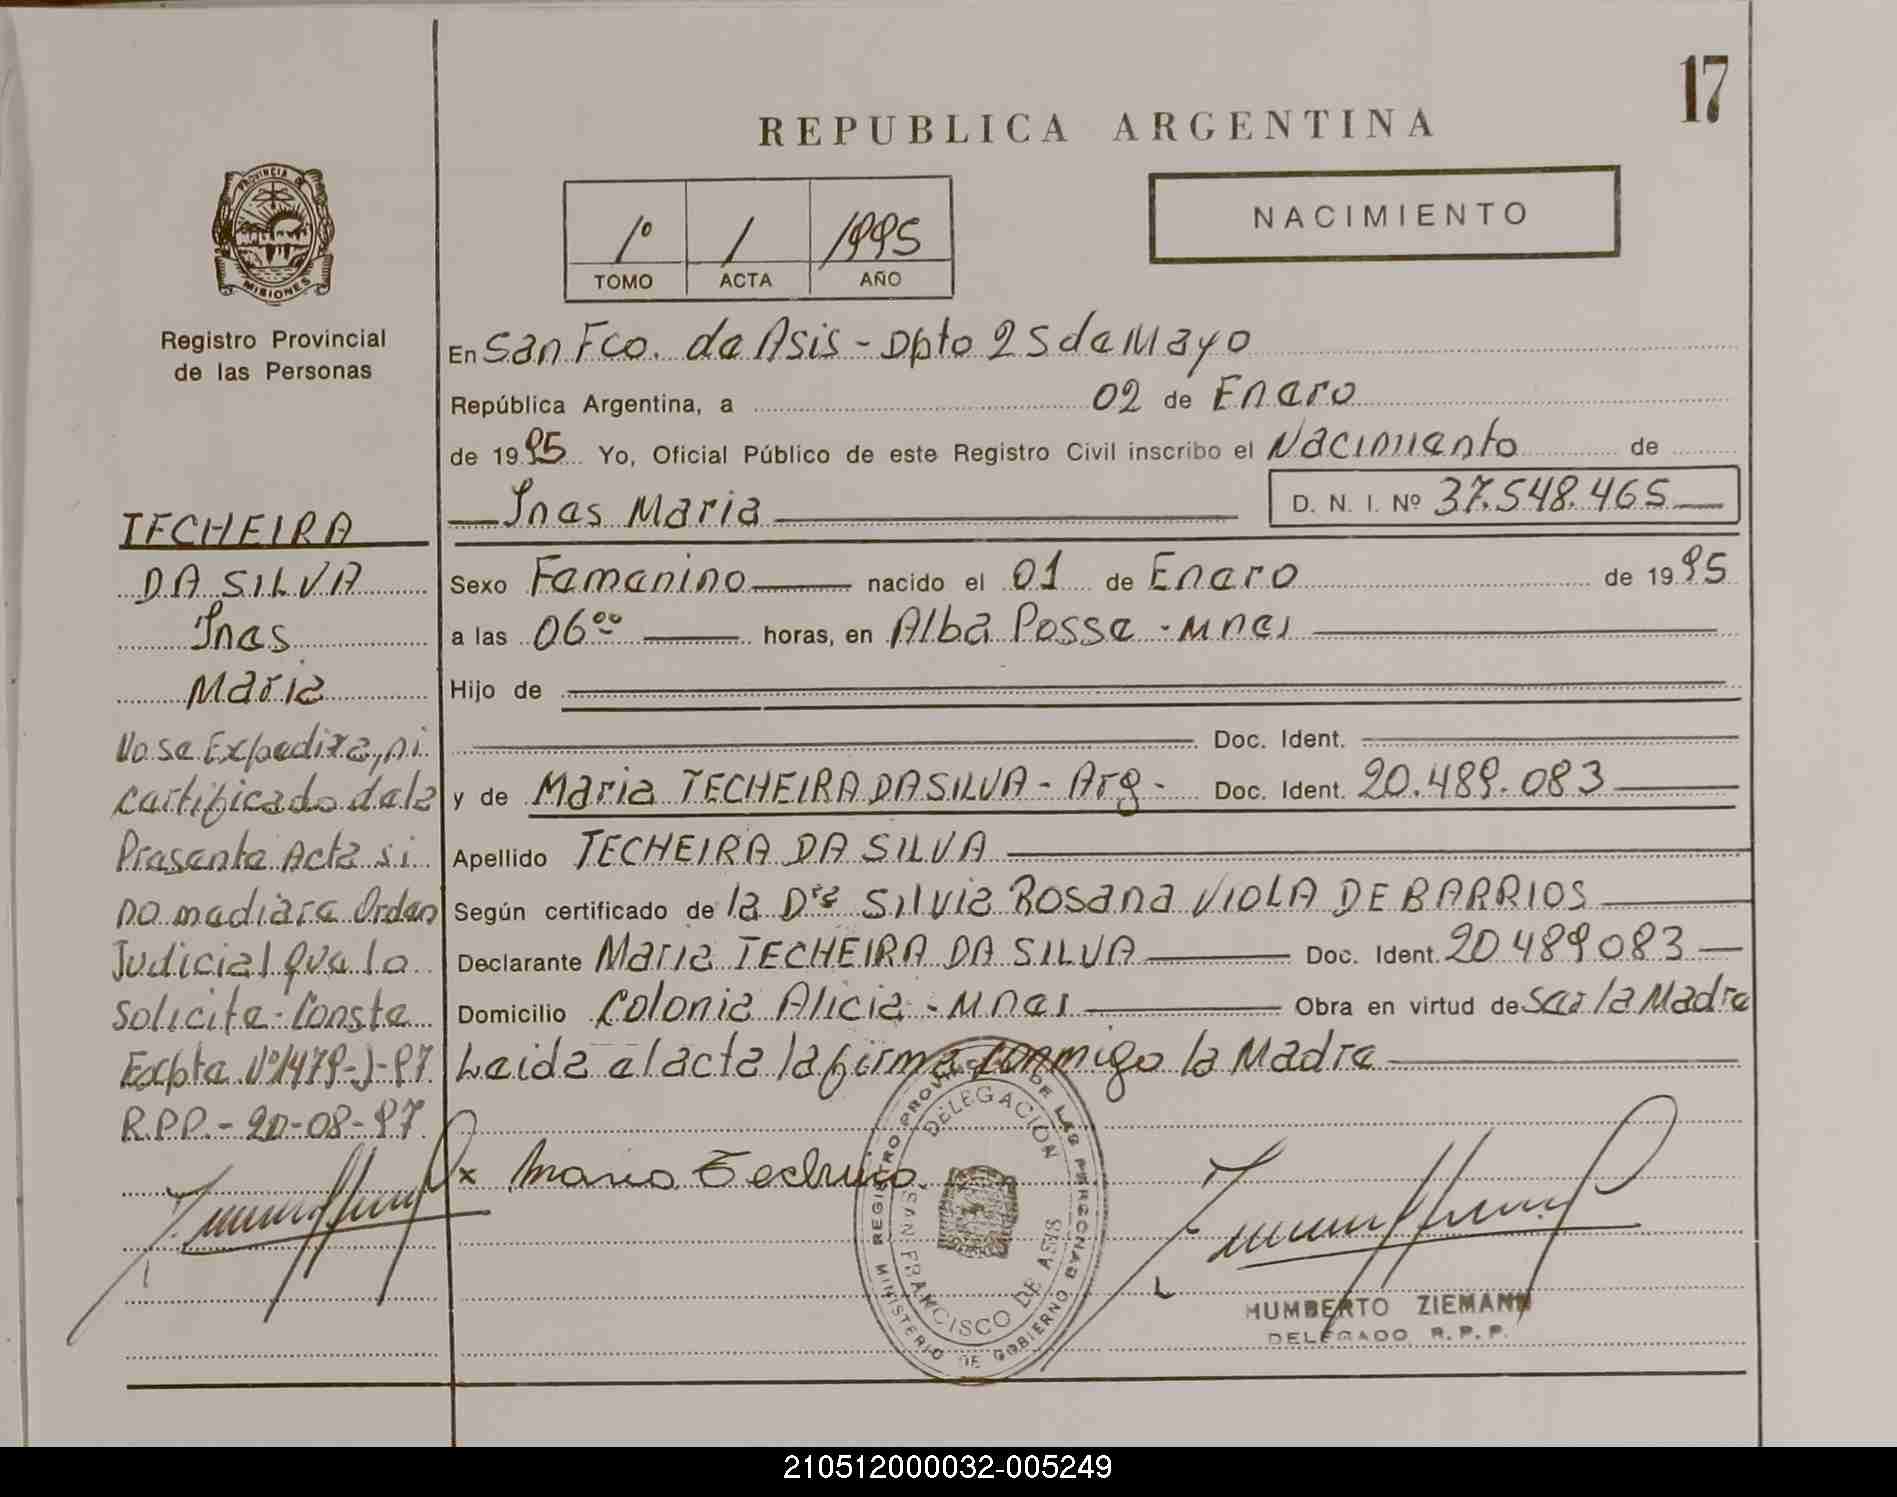 17
REPUBLICA ARGENTINA
PROVINCIA DE
MISIONES
Registro Provincial
de las Personas
1º 1 1995
TOMO ACTA AÑO
NACIMIENTO
En San Fco. de Asis - Dpto 25 de Mayo
República Argentina, a 02 de Enero
de 1995 Yo, Oficial Público de este Registro Civil inscribo el Nacimiento de
Ines Maria D. N. I. Nº 37.548.465
Sexo Femenino nacido el 01 de Enero de 1995
a las 06⁰⁰ horas, en Alba Posse - Mnes
Hijo de
Doc. Ident.
y de Maria TECHEIRA DA SILVA - Arg - Doc. Ident. 20.489.083
Apellido TECHEIRA DA SILVA
Según certificado de la Dra Silvia Rosana VIOLA DE BARRIOS
Declarante Maria TECHEIRA DA SILVA Doc. Ident. 20489083
Domicilio Colonia Alicia - Mnes Obra en virtud de Ser la Madre
Leida el acta la firma conmigo la Madre
TECHEIRA
DA SILVA
Ines
Maria
No se Expedira, ni
Certificado de la
Presente Acta si
no mediara Orden
Judicial que lo
Solicite - Conste
Expte Nº 1479-J-97
R.P.P. - 20-08-97
x Maria Techeira
REGISTRO PROVINCIAL DE LAS PERSONAS
MINISTERIO DE GOBIERNO
DELEGACION
SAN FRANCISCO DE ASIS
HUMBERTO ZIEMANN
DELEGADO R. P. P.
210512000032-005249